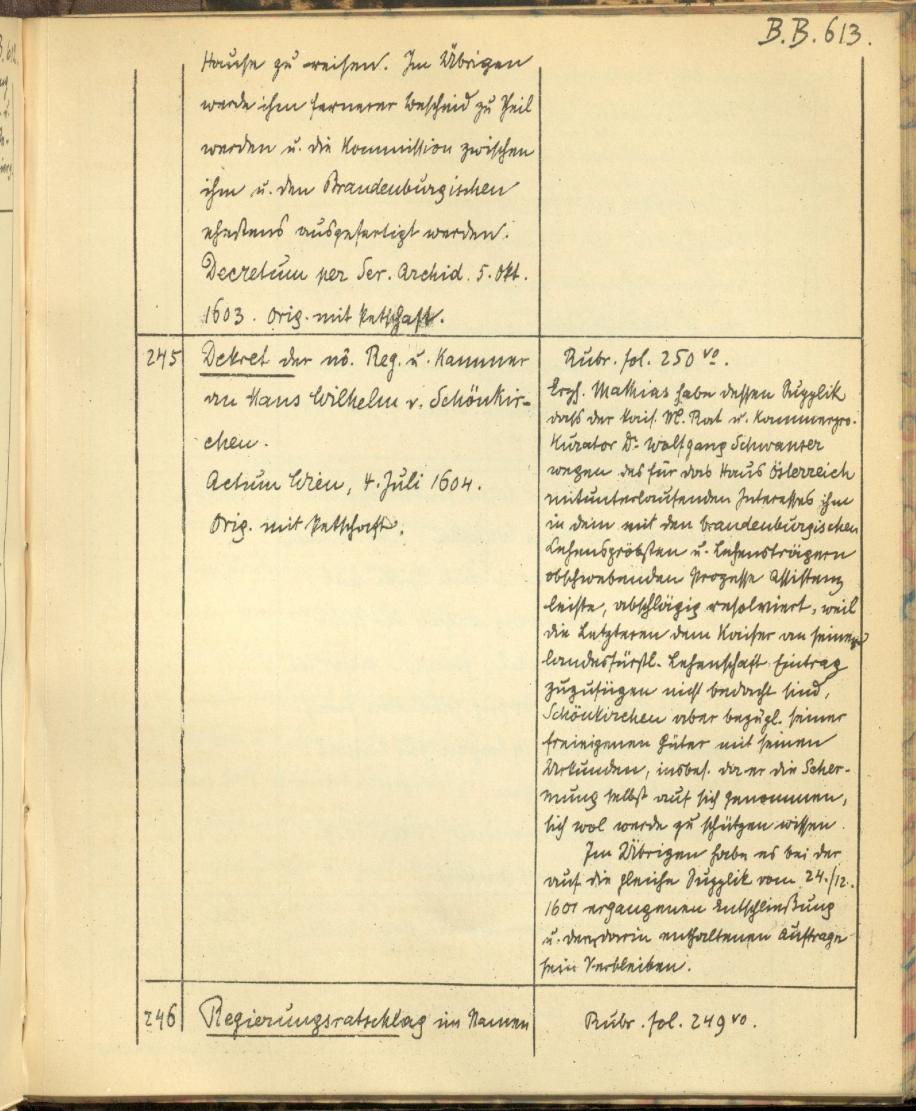 B.B. 613.
Hause zu reisen. Im Übrigen
werde ihm fernerer Bescheid zu Theil
werden u. die Kommission zwischen
ihm u. den Brandenburgischen
ehestens ausgefertigt werden.
Decretum per Ser. Archid. 5. Okt.
1603. Orig. mit Petschaft.
245
Dekret der nö. Reg. u. Kammer
an Hans Wilhelm v. Schönkir-
chen.
Actum Wien, 4. Juli 1604.
Orig. mit Petschaft.
Rubr. fol. 250 vo.
Erzh. Mathias habe dessen Supplik
dass der kais. Mt. Rat u. Kammerpro-
kurator Dr. Wolfgang Schwanser
wegen des für das Haus Österreich
mitunterlaufenden Interesses ihm
in dem mit den brandenburgischen
Lehenspröbsten u. Lehensträgern
obschwebenden Prozesse Assistenz
leiste, abschlägig resolviert, weil
die Letzteren dem Kaiser an seiner
landesfürstl. Lehenschaft Eintrag
zuzufügen nicht bedacht sind,
Schönkirchen aber bezügl. seiner
freieigenen Güter mit seinen
Urkunden, insbes. da er die Scher-
mung selbst auf sich genommen,
sich wol werde zu schützen wissen.
Im Übrigen habe es bei der
auf die gleiche Supplik vom 24./12.
1601 ergangenen Entschließung
u. dem darin enthaltenen Auftrage
sein Verbleiben.
246
Regierungsratschlag im Namen
Rubr. fol. 249 vo.